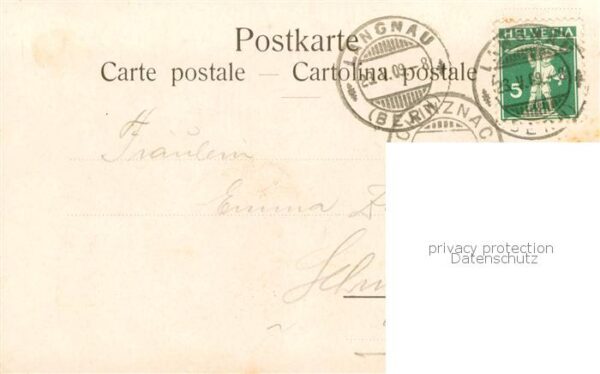 Postkarte
Carte postale — Cartolina postale
LANGNAU
09 - 8
(BERN)
HELVETIA
5
ZNAC
Fräulein
Emma
privacy protection
Datenschutz